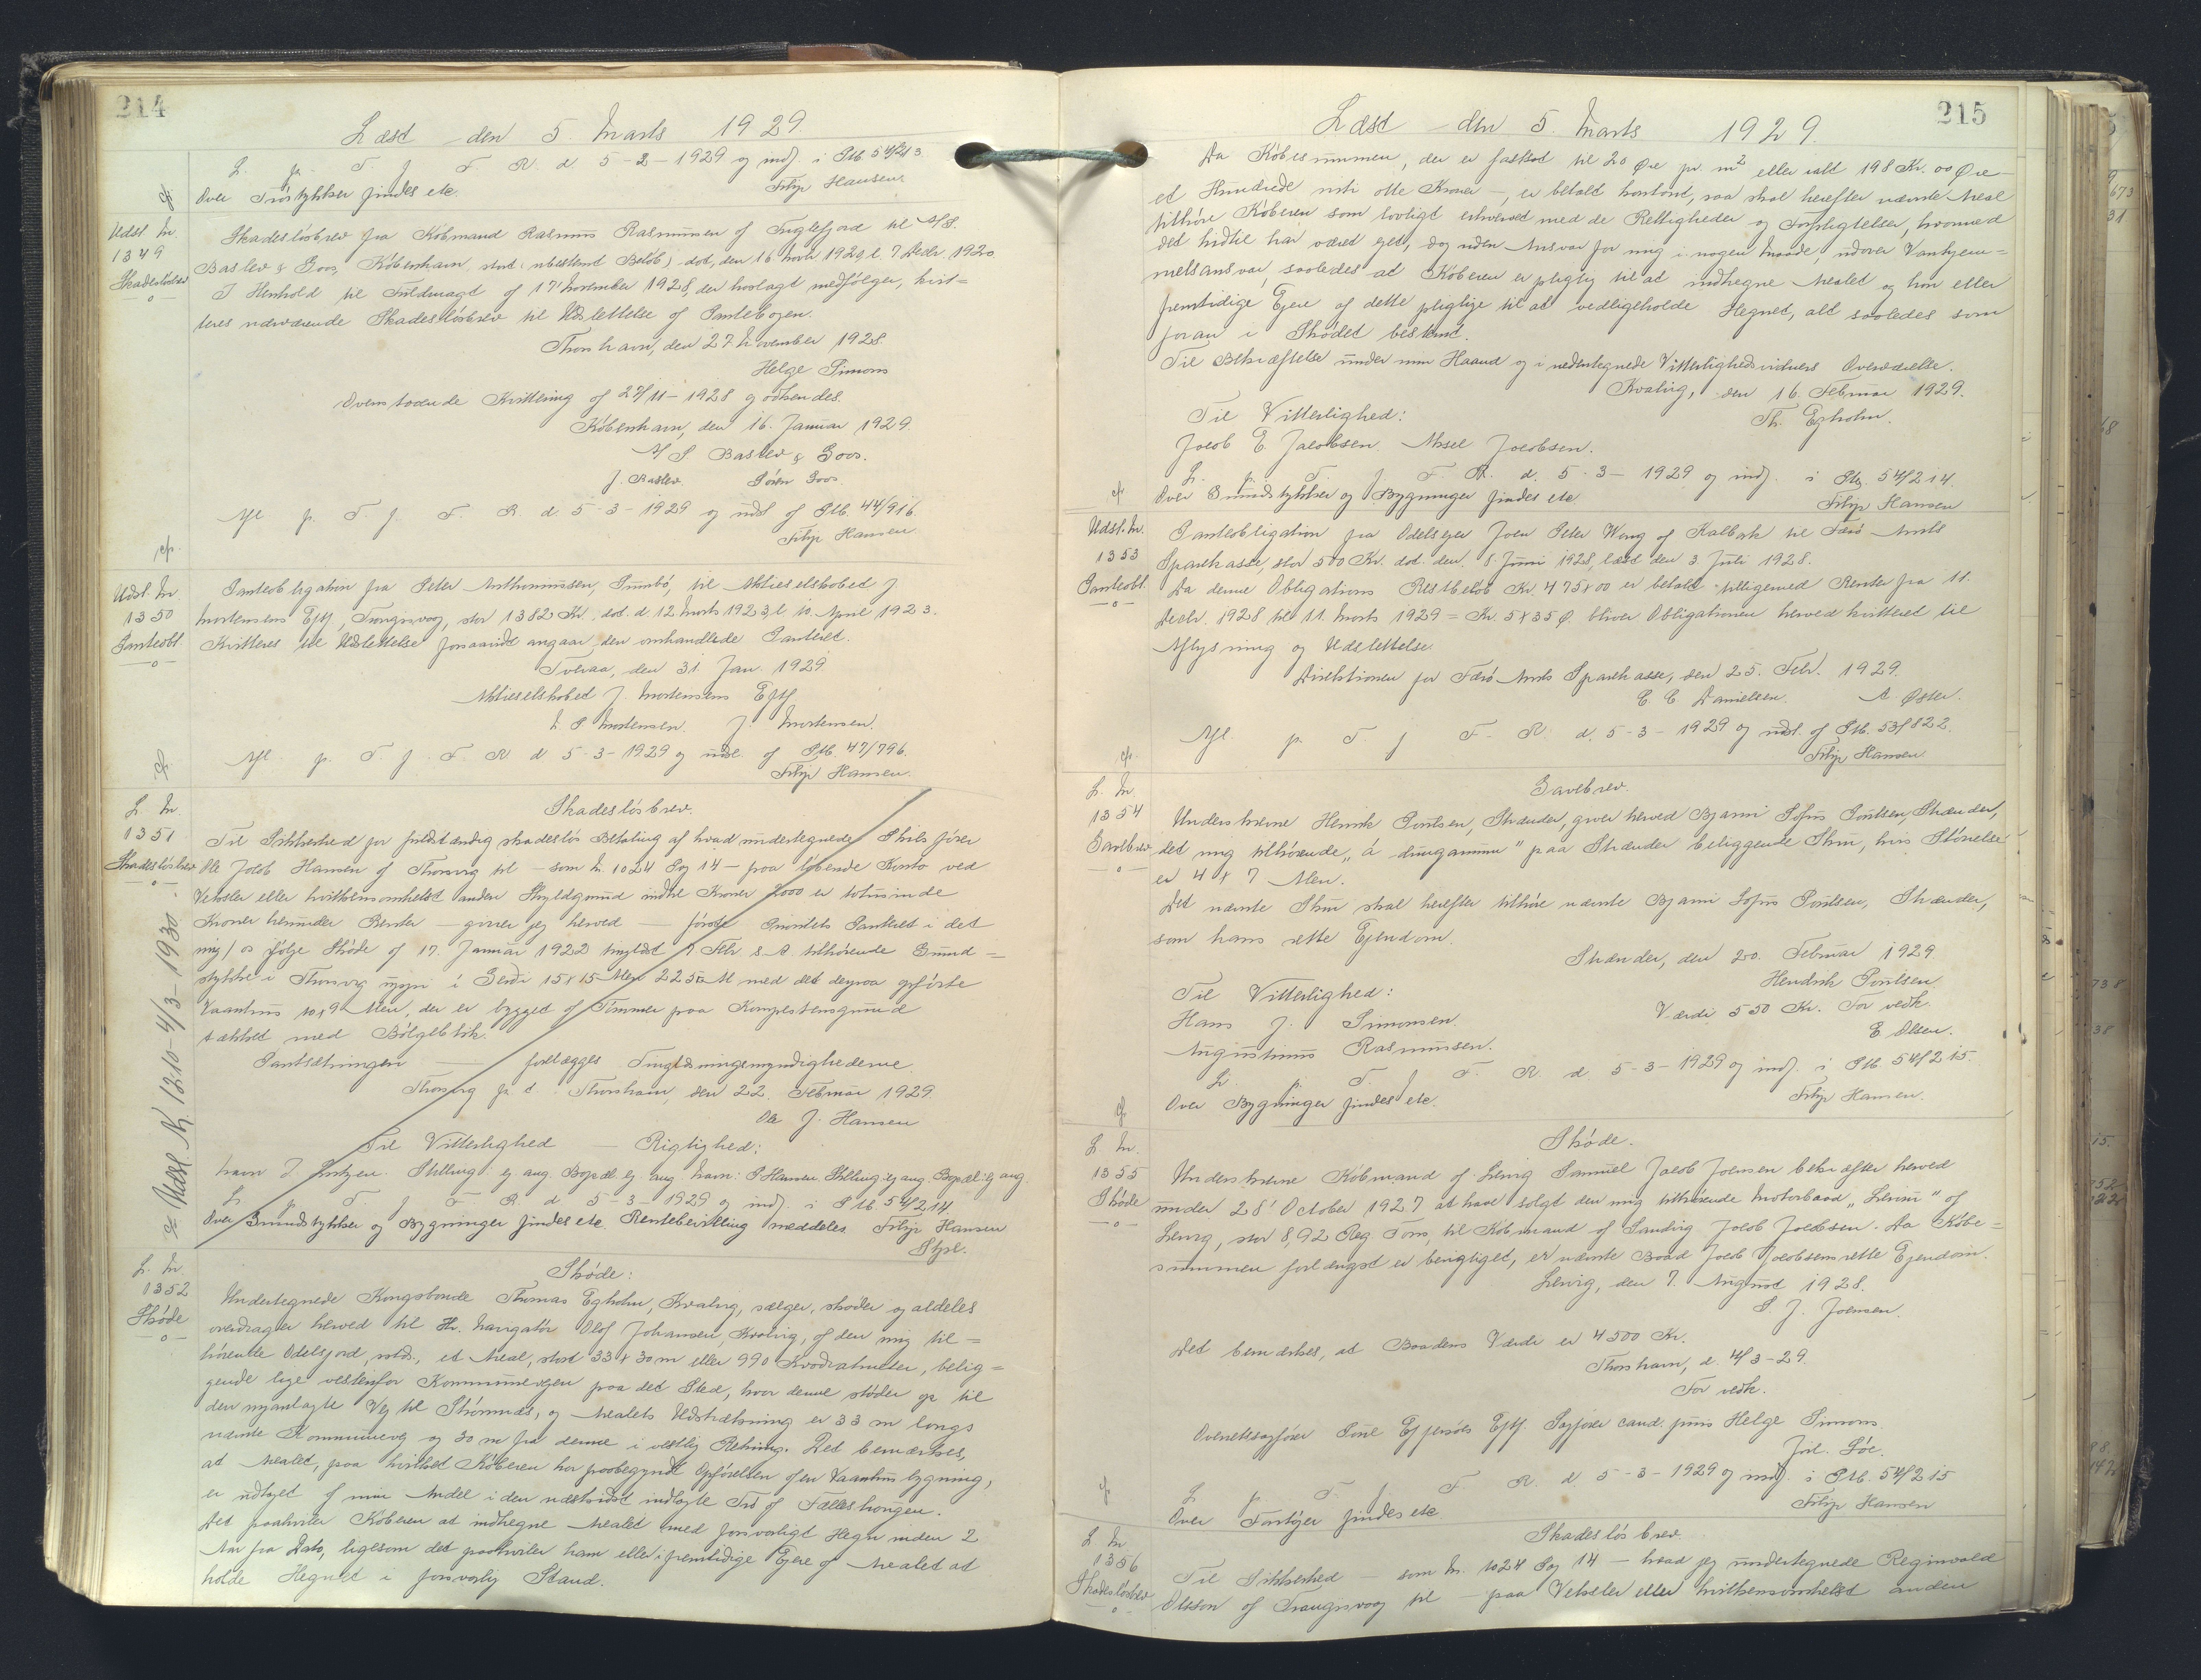 214
Læst den 5. Marts 1929.
L. p. T. f. F. R. d. 5-2-1929 og indf. i Ptb. 54/213.
cfr. Over Jordstykker findes etc. Filip Hansen.
Udsl. Nr. 1349 Skadesløsbrev
Skadesløsbrev fra Købmand Rasmus Rasmussen af Fuglefjord til A/S.
Baslev & Goos, København, stort ubestemt Beløb, dat. den 16 Novbr 1920, l. 7 Decbr 1920.
I Henhold til Fuldmagt af 17 November 1928, der hoslagt medfølger, kvit=
teres nærværende Skadesløsbrev til Udslettelse af Pantebogen.
Thorshavn, den 27 November 1928.
Helge Simons
Ovenstaaende Kvittering af 27/11-1928 godkendes.
København, den 16. Januar 1929.
A/S Baslev & Goos.
J. Baslev Søren Goos.
Afl. p. T. f. F. R. d. 5-3-1929 og udsl. af Ptb. 44/916.
cfr. Filip Hansen.
Udsl. Nr. 1350 Panteobl.
Panteobligation fra Peter Anthoniussen, Sumbø, til Aktieselskabet J.
Mortensens Eftf., Trongisvaag, stor 1382 Kr., dat. d. 12 Marts 1923, l. 10. April 1923.
Kvitteres til Udslettelse forsaavidt angaar den omhandlede Panteret.
Tveraa, den 31 Jan. 1929.
Aktieselskabet J. Mortensens Eftf.
N. P. Mortensen. J. Mortensen.
Afl. p. T. f. F. R. d. 5-3-1929 og udsl. af Ptb. 47/796.
cfr. Filip Hansen.
L. Nr. 1351 Skadesløsbrev
Skadesløsbrev.
Til Sikkerhed for fuldstændig skadesløs Betaling af hvad undertegnede Skibsfører
Ole Jakob Hansen af Thorsvig til - som N. 1024 Pag 14 - paa løbende Konto ved
Veksler eller hvilkensomhelst anden Skyldgrund indtil Kroner 2000 er totusinde
Kroner herunder Renter - giver jeg herved - første Prioritets Panteret i det
mig i Følge Skøde af 17. Januar 1922 tinglæst 7 Febr s. A. tilhørende Grund=
stykke i Thorsvig 15 x 15 Alen 225 □ Al. med det derpaa opførte
Vaanhus 10x9 Alen, der er bygget af Tømmer paa Kampestensgrund
tækket med Bølgeblik.
Pantsætningen - forelægges Tinglæsningsmyndighederne.
Thorsvig p. t. Thorshavn, den 22. Februar 1929.
Ole J. Hansen
Til Vitterlighed - Rigtighed:
Navn: J. Lützen. Stilling: ej ang. Bopæl: ej ang. Navn: P. Hansen. Stilling: ej ang. Bopæl: ej ang.
L. p. T. f. F. R. d. 5-3-1929 og indf. i Ptb. 54/214.
Over Grundstykker og Bygninger findes etc. Rentebevilling meddeles. Filip Hansen
cfr. Udsl. N. 1210-4/3-1930. Stpl.
L. Nr. 1352 Skøde
Skøde:
Undertegnede Kongsbonde Thomas Egholm, Kvalvig, sælger, skøder og aldeles
overdrager herved til Hr. Navigatør Olaf Johansen, Kvalvig, af den mig til=
hørende Odelsjord, smstds., et Areal, stort 33 x 30 m eller 990 Kvadratmeter, belig=
gende lige vestenfor Kommunevejen paa det Sted, hvor denne støder op til
den nyanlagte Vej til Strømnæs, og Arealets Udstrækning er 33 m langs
nævnte Kommunevej og 30 m fra denne i vestlig Retning. Det bemærkes,
at Arealet, paa hvilket Køberen har paabegyndt Opførelsen af en Vaanhusbygning,
er udtaget af min Andel i den nætsidst indlagte Trø af Fælleshaugen.
Det paahviler Køberen at indhegne Arealet med forsvarligt Hegn inden 2
Aar fra Dato, ligesom det paahviler ham eller fremtidige Ejere af Arealet at
holde Hegnet i forsvarlig Stand.
215
Læst den 5. Marts 1929.
Da Købesummen, der er fastsat til 20 Øre pr. m² eller ialt 198 Kr. 00 Øre -
et Hundrede niti otte Kroner -, er betalt kontant, saa skal herefter nævnte Areal
tilhøre Køberen som lovligt erhvervet med de Rettigheder og Forpligtelser, hvormed
det hidtil har været ejet, dog uden Ansvar for mig i nogen Maade udover Vanhjem=
melsansvar, saaledes at Køberen er pligtig til at indhegne Arealet og han eller
fremtidige Ejere af dette pligtige til at vedligeholde Hegnet, alt saaledes som
foran i Skødet bestemt.
Til Bekræftelse under min Haand og i nedentegnede Vitterlighedsvidners Overværelse.
Kvalvig, den 16. Februar 1929.
Til Vitterlighed: Th. Egholm.
Jacob E. Jacobsen. Aksel Jacobsen.
L. p. T. f. F. R. d. 5-3-1929 og indf. i Ptb. 54/214.
cfr. Over Grundstykker og Bygninger findes etc. Filip Hansen
Udsl. Nr. 1353 Panteobl.
Panteobligation fra Odelsejer Joen Peter Wang af Kalbak til Færø Amts
Sparekasse, stor 500 Kr. dat. den 8. Juni 1928, læst den 3. Juli 1928.
Da denne Obligations Restbeløb Kr. 475 x 00 er betalt tilligemed Renter fra 11.
Decbr. 1928 til 11. Marts 1929 = Kr. 5 x 35 Ø. bliver Obligationen herved kvitteret til
Aflysning og Udslettelse.
Direktionen for Færø Amts Sparekasse, den 25. Febr. 1929.
C. C. Danielsen. A. Øster.
Afl. p. T. f. F. R. d. 5-3-1929 og udsl. af Ptb. 53/822.
cfr. Filip Hansen
L. Nr. 1354 Gavebrev
Gavebrev.
Underskrevne Henrik Poulsen, Strænder, giver herved Bjarni Sofus Poulsen, Strænder,
det mig tilhørende „á dungamum" paa Strænder beliggende Skur, hvis Størrelse
er 4 x 7 Alen.
Det nævnte Skur skal herefter tilhøre nævnte Bjarni Sofus Poulsen, Strænder,
som hans rette Ejendom.
Strænder, den 20. Februar 1929.
Til Vitterlighed: Hendrik Poulsen.
Hans J. Simonsen. Værdi 550 Kr. For vedk.
Augustinus Rasmussen. E. Olsen.
L. p. T. f. F. R. d. 5-3-1929 og indf. i Ptb. 54/215.
cfr. Over Bygninger findes etc. Filip Hansen.
L. Nr. 1355 Skøde
Skøde.
Underskrevne Købmand af Lervig Samuel Jacob Joensen bekræfter herved
under 28' October 1927 at have solgt den mig tilhørende Motorbaad „Leirvi" af
Lervig, stor 8,92 Reg. Tons, til Købmand af Sandvig Jacob Jacobsen. Da Købe=
summen forlængst er berigtiget, er nævnte Baad Jacob Jacobsens rette Ejendom.
Lervig, den 7. August 1928.
S. J. Joensen.
Det bemærkes, at Baadens Værdi er 4500 Kr.
Thorshavn, d. 4/3-29.
For vedk.
Overretssagfører Sone Effersøes Eftf. Sagfører cand. juris Helge Simons.
Joh. Løe.
L. p. T. f. F. R. d. 5-3-1929 og indf. i Ptb. 54/215
cfr. Over Fartøjer findes etc. Filip Hansen
L. Nr. 1356 Skadesløsbrev
Skadesløsbrev.
Til Sikkerhed - som N. 1024 Pag 14 - hvad jeg undertegnede Reginvald
Olsson af Trangisvaag til - paa Veksler eller hvilkensomhelst anden